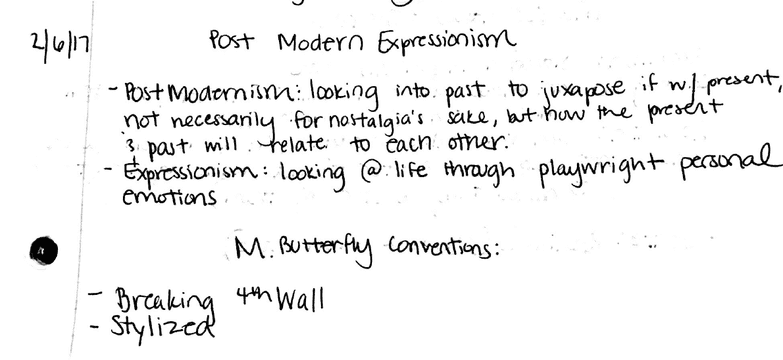 2/6/17 Post Modern Expressionism
- Post Modernism: looking into past to juxapose if w/ present,
not necessarily for nostalgia's sake, but how the present
& past will relate to each other.
- Expressionism: looking @ life through playwright personal
emotions
M. Butterfly Conventions:
- Breaking 4th Wall
- Stylized